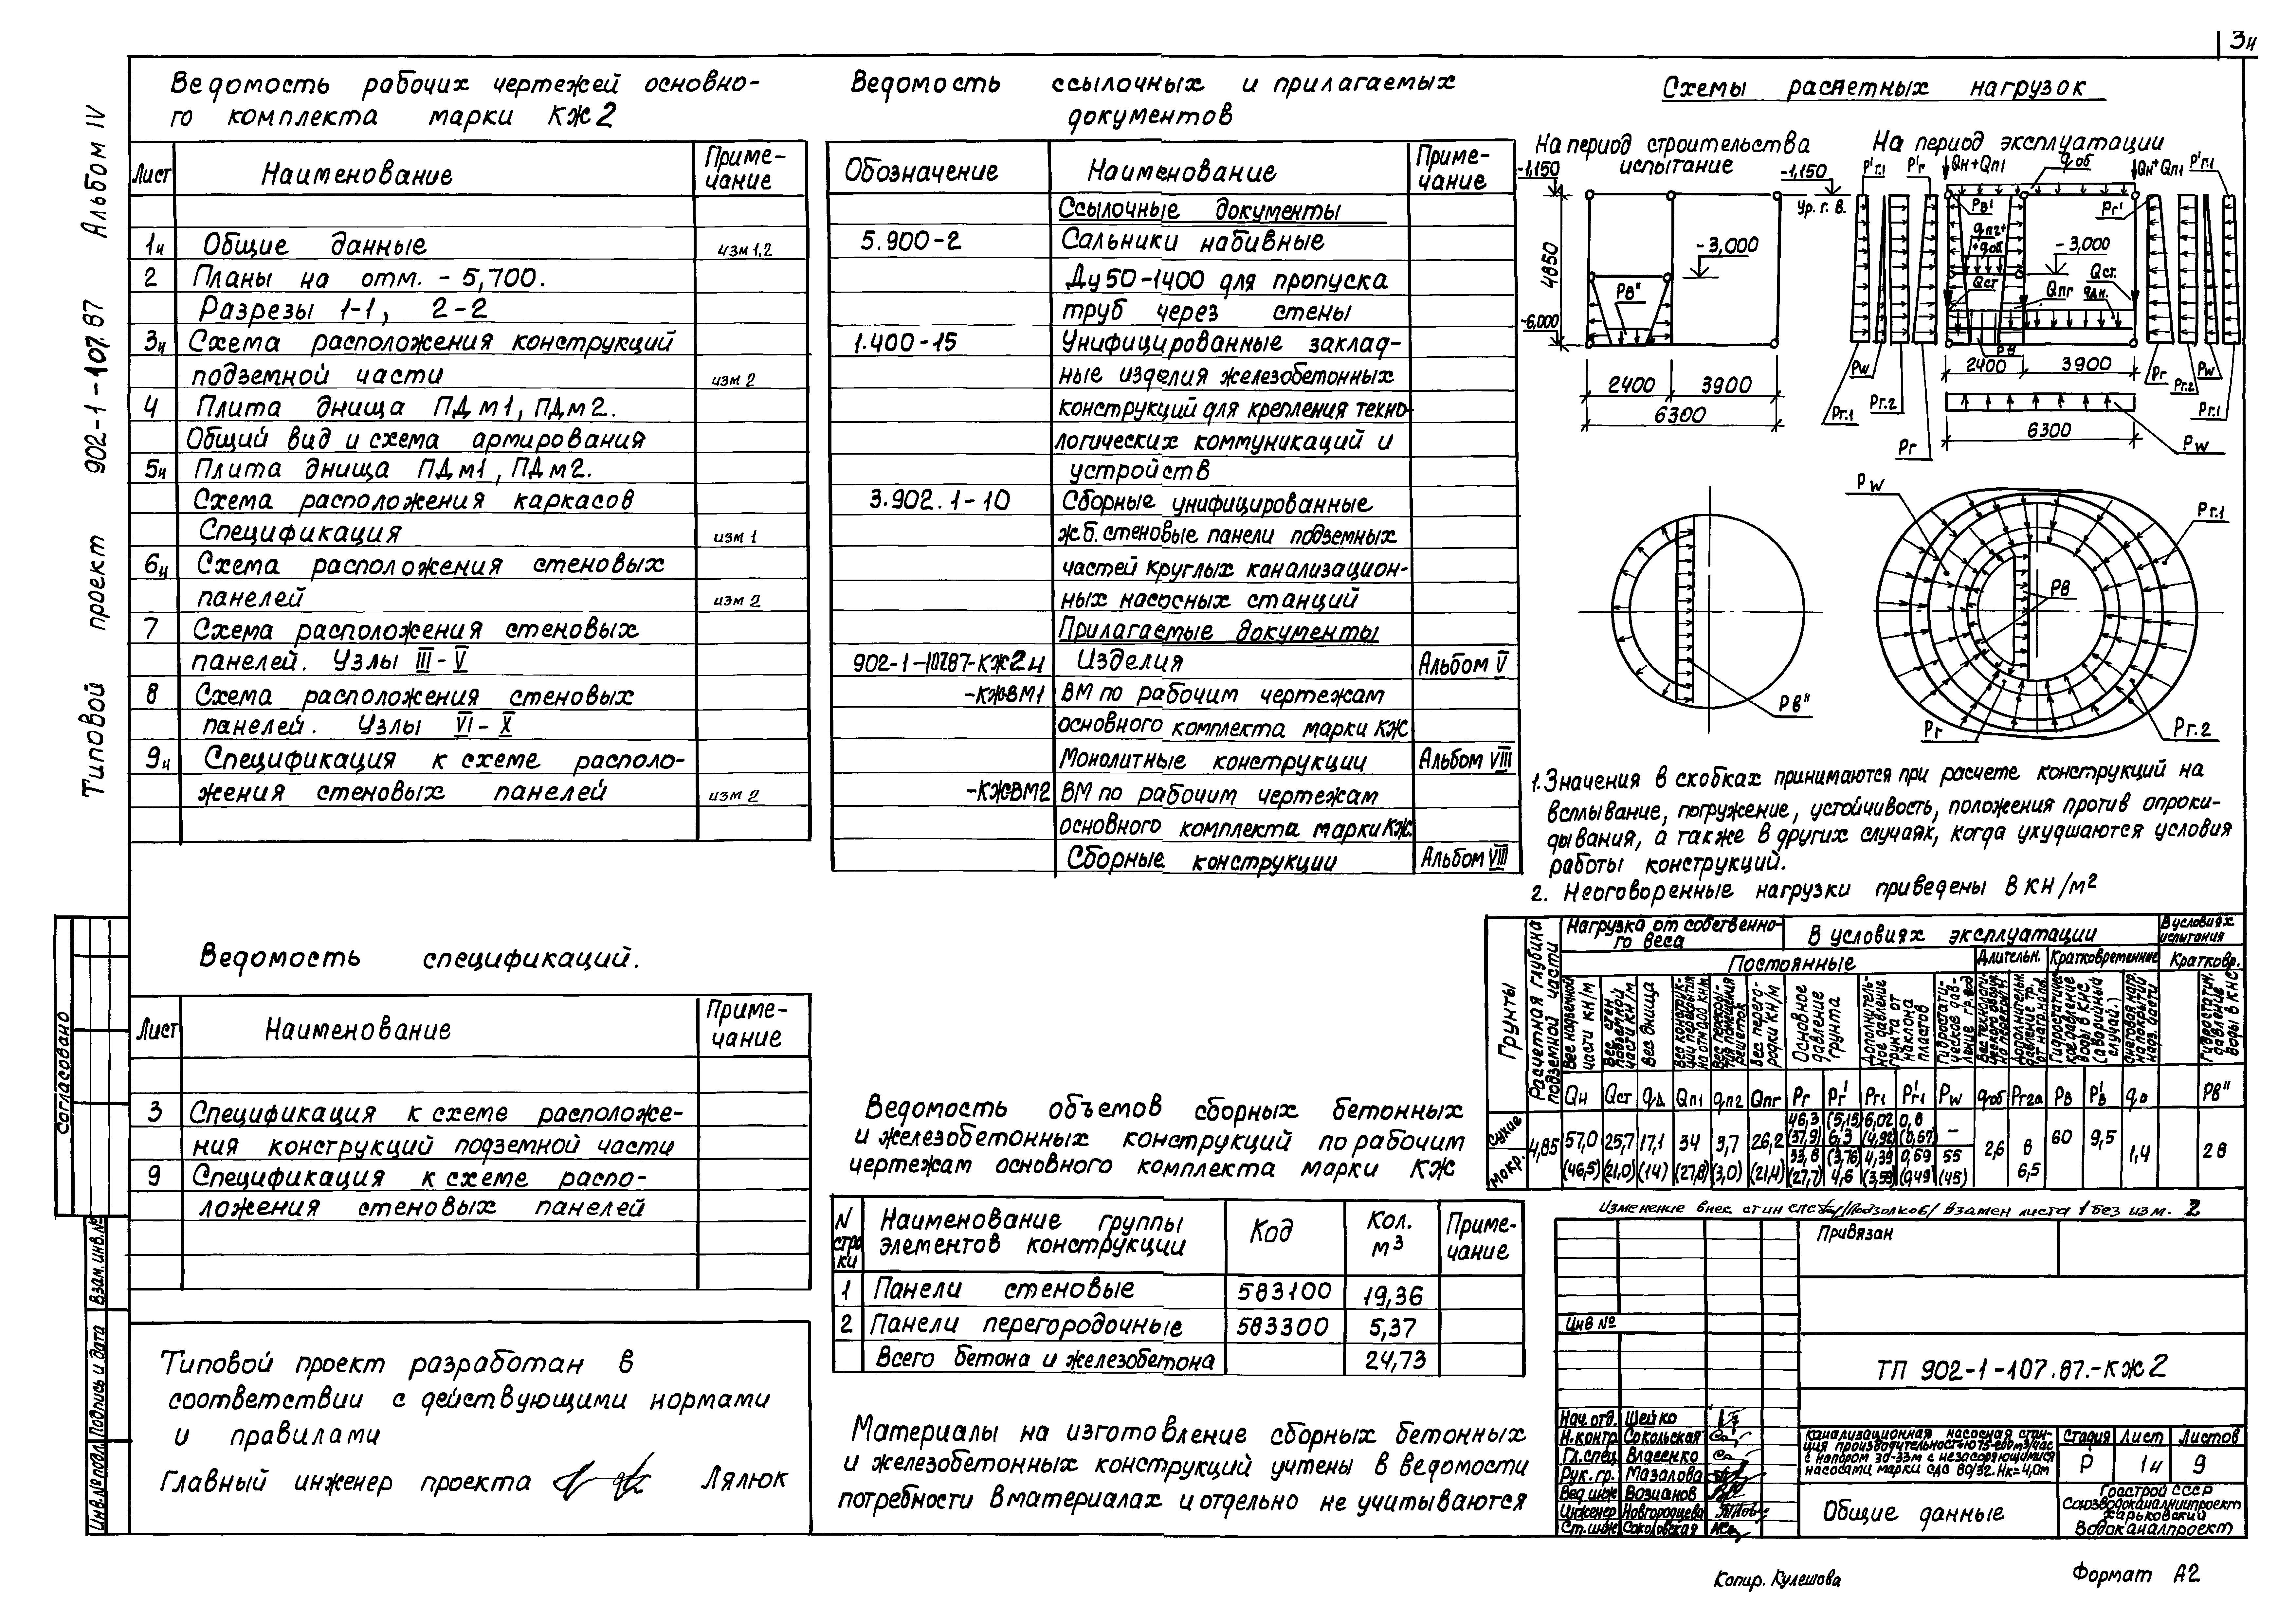 3и
Типовой проект 902-1-107.87 Альбом IV
Ведомость рабочих чертежей основно-
го комплекта марки КЖ2
Лист Наименование Приме-
чание
1и Общие данные изм 1,2
2 Планы на отм. - 5,700.
Разрезы 1-1, 2-2
3и Схема расположения конструкций
подземной части изм 2
4 Плита днища ПДм1, ПДм2.
Общий вид и схема армирования
5и Плита днища ПДм1, ПДм2.
Схема расположения каркасов
Спецификация изм 1
6и Схема расположения стеновых
панелей изм 2
7 Схема расположения стеновых
панелей. Узлы III-V
8 Схема расположения стеновых
панелей. Узлы VI-X
9и Спецификация к схеме располо-
жения стеновых панелей изм 2
Ведомость спецификаций.
Лист Наименование Приме-
чание
3 Спецификация к схеме расположе-
ния конструкций подземной части
9 Спецификация к схеме распо-
ложения стеновых панелей
Типовой проект разработан в
соответствии с действующими нормами
и правилами
Главный инженер проекта Лялюк
Согласовано
Взам. инв. №
Подпись и дата
Инв. № подл.
Ведомость ссылочных и прилагаемых
документов
Обозначение Наименование Приме-
чание
Ссылочные документы
5.900-2 Сальники набивные
Ду 50-1400 для пропуска
труб через стены
1.400-15 Унифицированные заклад-
ные изделия железобетонных
конструкций для крепления техно-
логических коммуникаций и
устройств
3.902.1-10 Сборные унифицированные
ж.б. стеновые панели подземных
частей круглых канализацион-
ных насосных станций
Прилагаемые документы
902-1-107.87-КЖ2и Изделия Альбом V
-КЖВМ1 ВМ по рабочим чертежам
основного комплекта марки КЖ
Монолитные конструкции Альбом VIII
-КЖВМ2 ВМ по рабочим чертежам
основного комплекта марки КЖ.
Сборные конструкции Альбом VIII
Ведомость объемов сборных бетонных
и железобетонных конструкций по рабочим
чертежам основного комплекта марки КЖ
N
стро
ки
Наименование группы
элементов конструкции
Код Кол.
м³
Приме-
чание
1 Панели стеновые 583100 19,36
2 Панели перегородочные 583300 5,37
Всего бетона и железобетона 24,73
Материалы на изготовление сборных бетонных
и железобетонных конструкций учтены в ведомости
потребности в материалах и отдельно не учитываются
Схемы расчетных нагрузок
На период строительства
испытание
-1,150
-1,150
Ур. г. в.
-3,000
4850
Рв"
-6,000
2400 3900
6300
На период эксплуатации
Р'г.1 Р'г Qн+Qп1 qоб Qн+Qп1 Р'г.1
Рв' Рг'
qп2+
+qоб
-3,000
Qст Qст.
Qпг qдн.
Рв
2400 3900
Рw Рг Рг.2 Рw
Рг.1 Рг.2 Рг.1
6300
Рг Рw
Рв"
Рw Рг.1
Рв
Рг Рг.2
1. Значения в скобках принимаются при расчете конструкций на
всплывание, погружение, устойчивость, положения против опроки-
дывания, а также в других случаях, когда ухудшаются условия
работы конструкций.
2. Неоговоренные нагрузки приведены в кн/м²
Грунты
Расчетная глубина
подземной части
Нагрузка от собственно-
го веса
В условиях эксплуатации
В условиях
испытания
Постоянные Длительн. Кратковременные Кратковр.
Вес надземной
части кн/м
Вес стен
подземной
части кн/м
Вес днища
Вес перего-
родки кн/м
Основное
давление
грунта
Дополнитель-
ное давление
грунта от
наклона
пластов
Гидростати-
ческое дав-
ление гр. вод
Гидростатич.
давление
воды в КНС
Qн Qст qд Qп1 qп2 Qпг Рг Рг' Рг1 Р'г1 Рw qоб Рг2а Рв Р'в q.о Рв"
Сухие
46,3 (5,15) 6,02 0,8
4,85 57,0 25,7 17,1 34 3,7 26,2 (37,9) 6,3 (4,92) (0,67) – 2,6 8 60 9,5 1,4 28
Мокр.
33,8 (3,76) 4,39 0,59 55
(46,5) (21,0) (14) (27,8) (3,0) (21,4) (27,7) 4,6 (3,59) (0,49) (45) 6,5
Изменение внес /Подзолков/ взамен листа 1 без изм. 2
Привязан
Инв №
ТП 902-1-107.87.-КЖ2
Нач. отд. Шейко
Н.контр. Сокольская
Гл.спец. Власенко
Рук. гр. Мазалова
Вед инж Возианов
Инженер Новгородцева
Ст.инж Соколовская
Канализационная насосная стан-
ция производительностью 75-200м³/час
с напором 30-33м с незасоряющимися
насосами марки сда 80/32. Нк=4,0м
Стадия Лист Листов
Р 1и 9
Общие данные
Госстрой СССР
Союзводоканалниипроект
Харьковский
Водоканалпроект
Копир. Кулешова
Формат А2